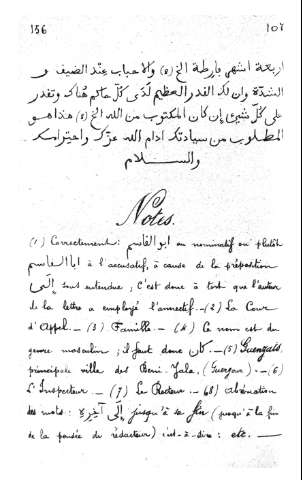 156 ١٥٦
اربعة اشهر بارطة الخ (٥) والاحباب عند الضيف و
الشدّة وان لك القدر العظيم لدى كلّ حاكم هناك وتقدر
على كلّ شيئ ان كان المكتوب من الله الخ (٨) هذا هو
المطلوب من سيادتك ادام الله عزّك واحترامك
والسلام
Notes.
(1) Correctement: ابو القاسم au nominatif ou plutôt
ابا القاسم à l'accusatif, à cause de la préposition
إلى sous entendue; C'est donc à tort que l'auteur
de la lettre a employé l'annectif — (2) La Cour
d'Appel — (3) Famille — (4) Ce nom est du
genre masculin; il faut donc كان — (5) Guenzats,
principale ville des Beni Yala, (Guergour) — (6)
L'Inspecteur — (7) Le Recteur — (8) Abréviation
des mots: إلى آخره jusqu'à sa fin (jusqu'à la fin
de la pensée du rédacteur) c'est-à-dire: etc. —